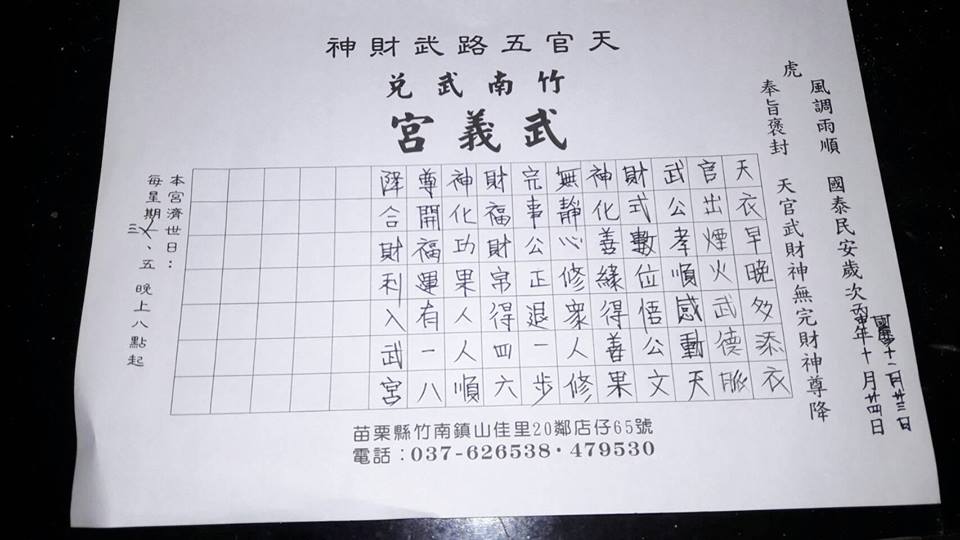 天官五路武財神
竹南武兌
武義宮
虎
風調雨順　國泰民安歲次丙申年十月廿四日
國曆十一月廿三日
奉旨褒封　天官武財神無完財神尊降
天衣早晚多添衣
官出煙火武德脈
武公孝順感動天
財式數位悟公文
神化善緣得善果
無靜心修眾人修
完事公正退一步
財福財帛得四六
神化功果人人順
尊開福運有一八
降合財利入武宮
本宮濟世日：
每星期三、五 晚上八點起
苗栗縣竹南鎮山佳里20鄰店仔65號
電話：037-626538・479530